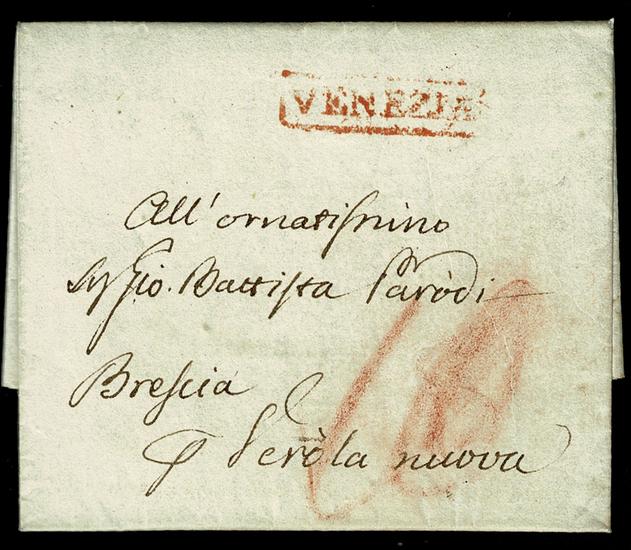 VENEZIA
All'ornatiſsimo
Sigr Gio. Battiſta Paròdi
Breſcia
p Veròla nuova